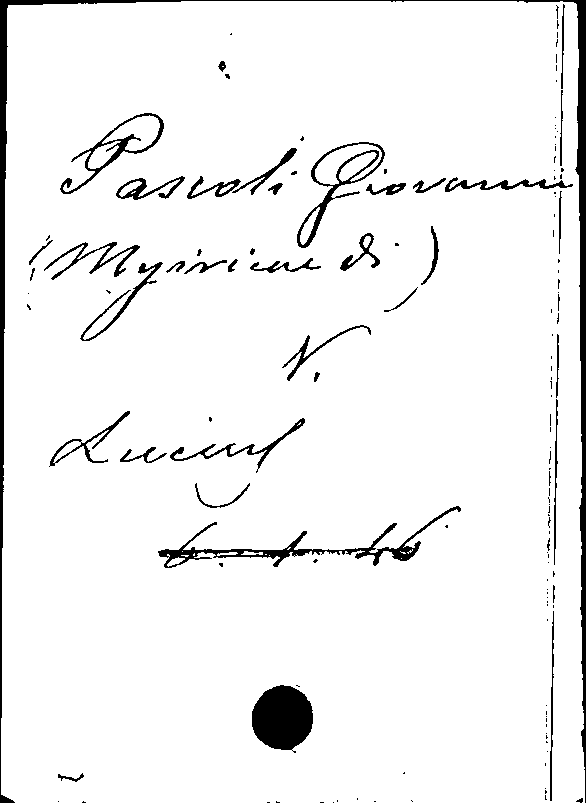 Pascoli Giovanni
(Myiricae di)
V.
Luciul
6. 1. 46